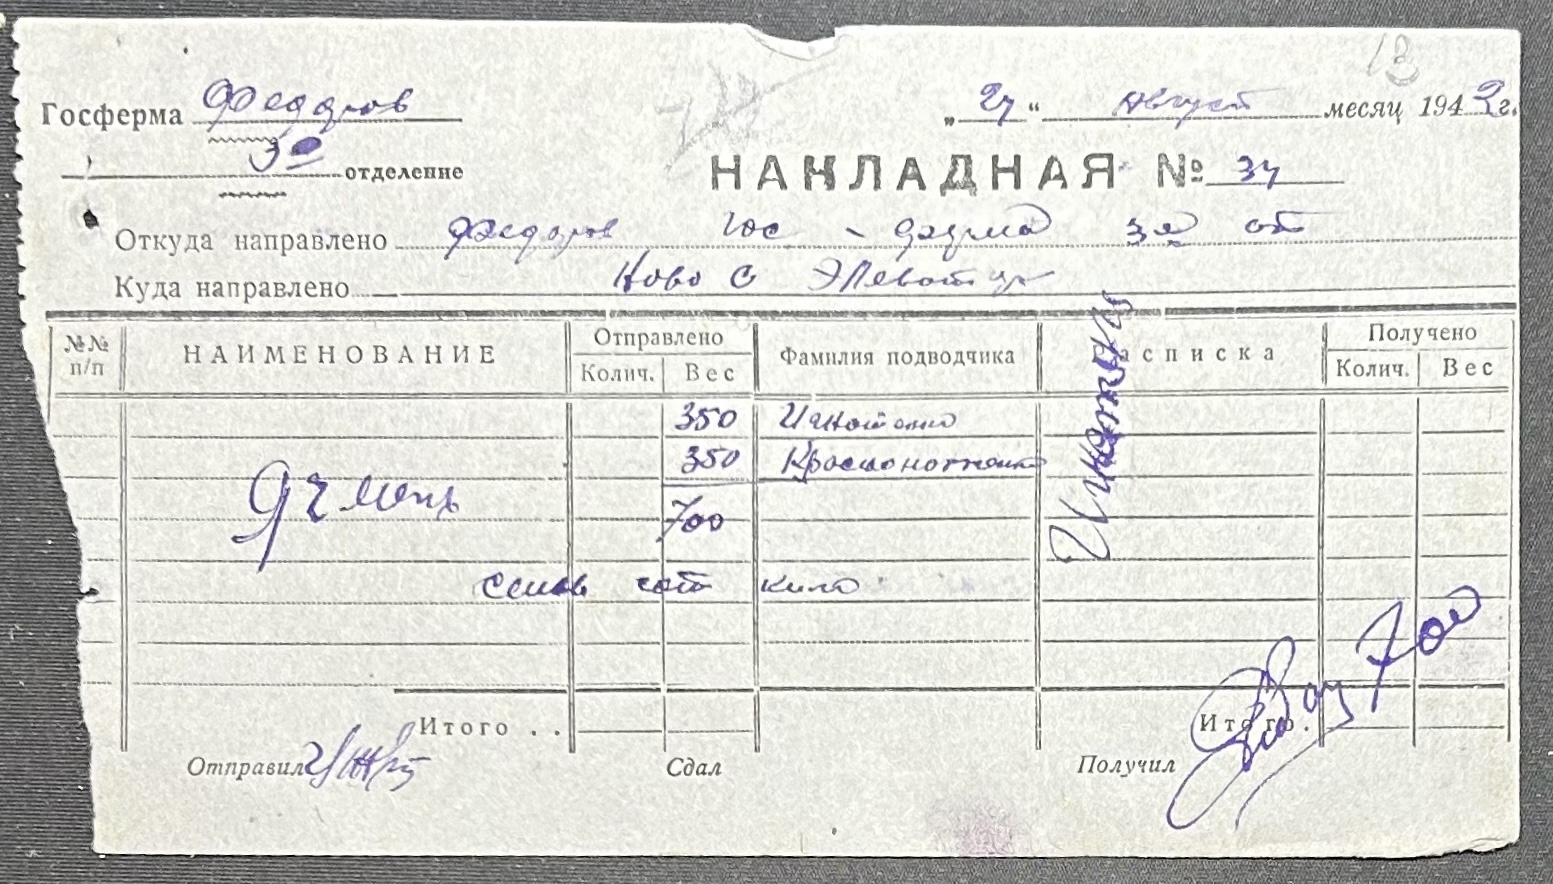 13
Госферма Федоров
„ 27 “ Август месяц 1942 г.
3е отделение
НАКЛАДНАЯ № 34
Откуда направлено Федоров Гос - ферма 3е от
Куда направлено Ново С Элеватор
№№ п/п НАИМЕНОВАНИЕ Отправлено Фамилия подводчика Расписка Получено
Колич. Вес Колич. Вес
350 Игнатенко
350
Ячмень 700
семьсот кило
700
Итого . . Итого .
Отправил Сдал Получил